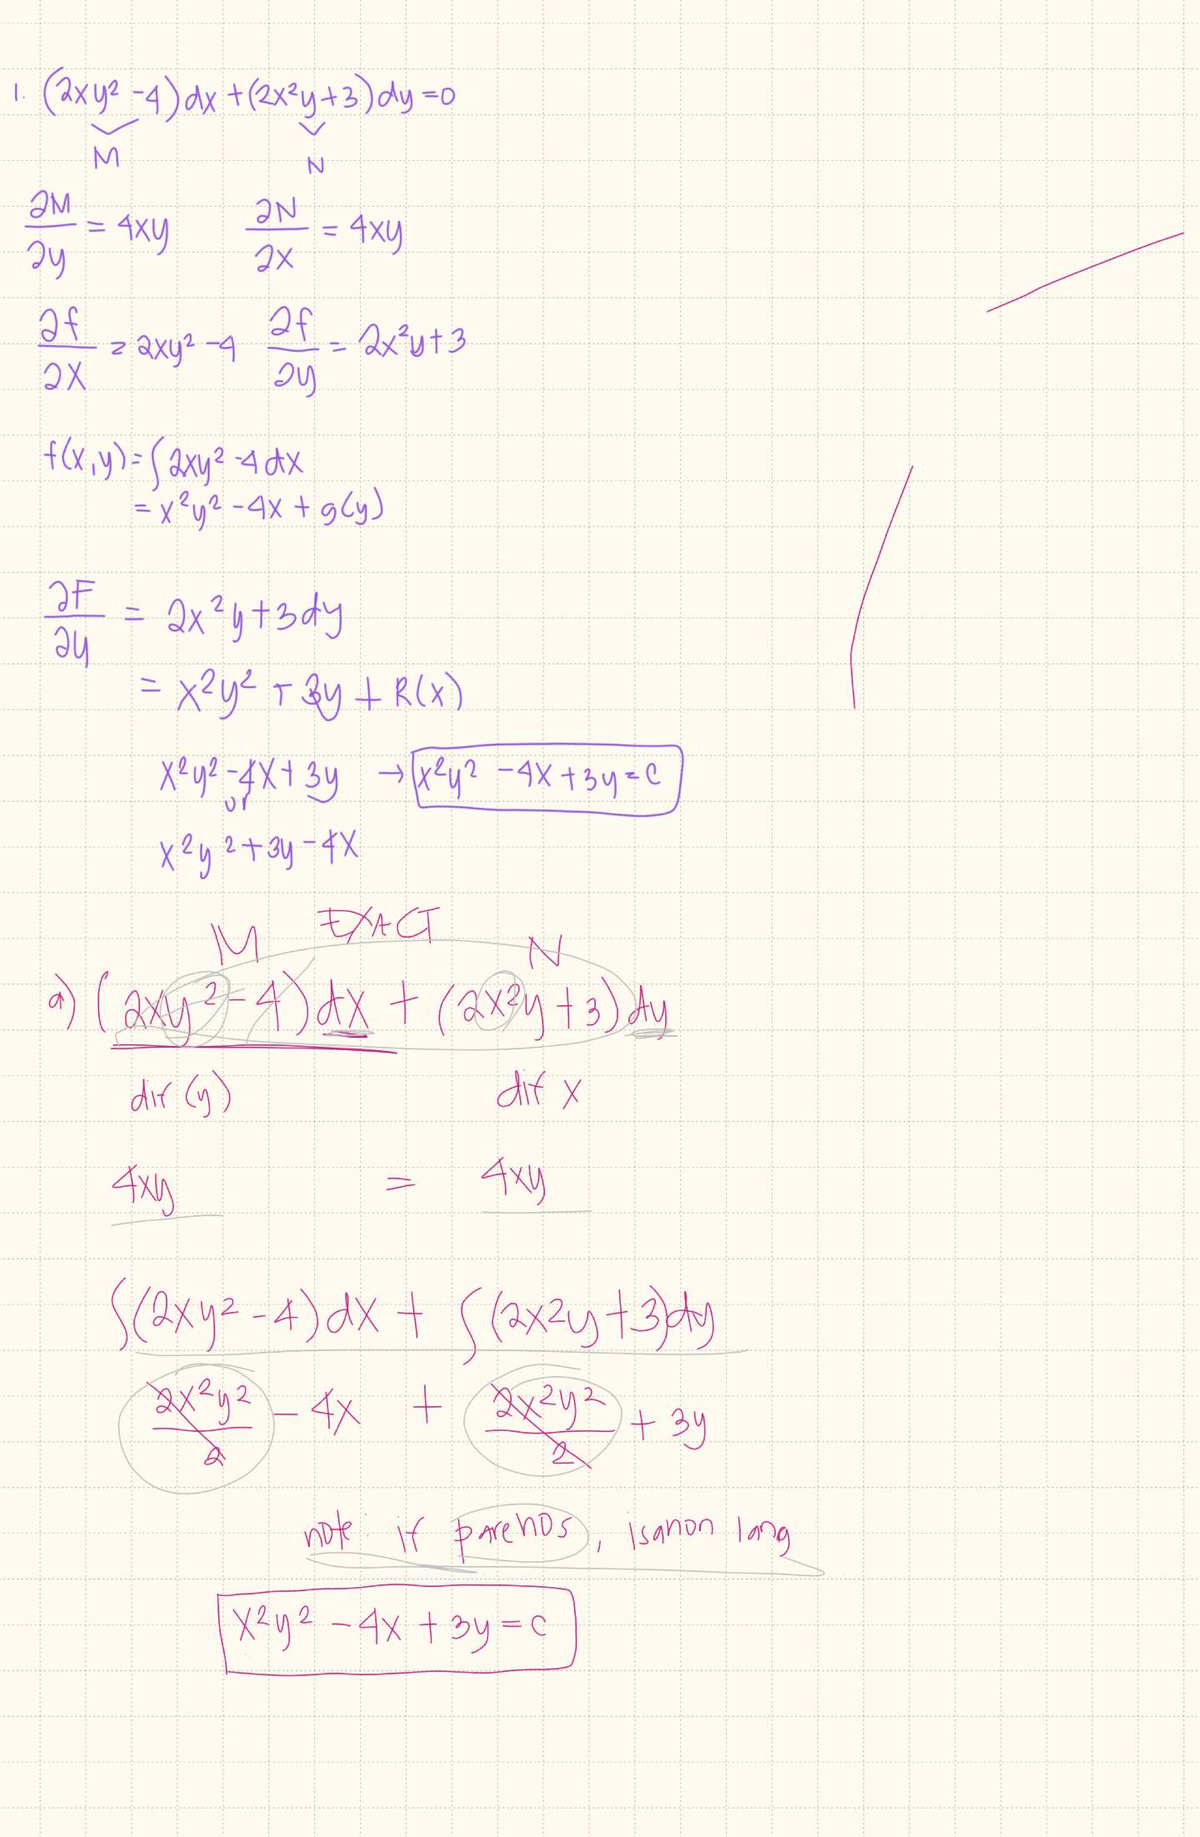 1. (2xy² -4)dx + (2x²y+3)dy =0
M N
∂M/∂y = 4xy ∂N/∂x = 4xy
∂f/∂x = 2xy² -4 ∂f/∂y = 2x²y+3
f(x,y)= ∫2xy² -4dx
= x²y² -4x + g(y)
∂F/∂y = 2x²y+3dy
= x²y² + 3y + R(x)
x²y² -4x + 3y → x²y² -4x + 3y = C
or
x²y² + 3y -4x
EXACT
M N
a) (2xy² -4)dx + (2x²y+3)dy
dif (y) dif x
4xy = 4xy
∫(2xy² -4)dx + ∫(2x2y+3)dy
2x²y²/2 - 4x + 2x²y²/2 + 3y
note: if parehos, isahon lang
x²y² - 4x + 3y = C